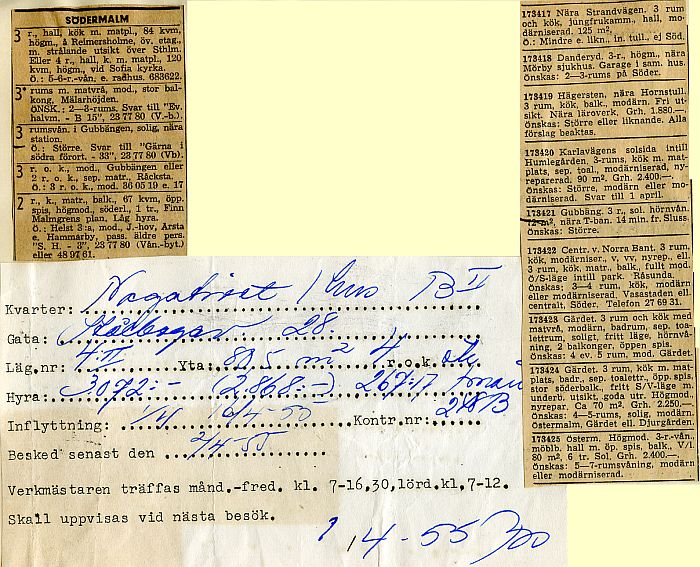 SÖDERMALM
3 r., hall, kök m. matpl., 84 kvm,
högm., å Reimersholme, öv. etag.,
m. strålande utsikt över Sthlm.
Eller 4 r., hall, k. m. matpl., 120
kvm, högm., vid Sofia kyrka.
Ö.: 5-6-r.-vån. e. radhus. 683622.
3 rums m. matvrå, mod., stor bal-
kong, Mälarhöjden.
ÖNSK.: 2—3-rums. Svar till "Ev.
halvm. - B 15", 23 77 80 (V.-b.).
3 rumsvån. i Gubbängen, solig, nära
station.
Ö.: Större. Svar till "Gärna i
södra förort. - 33", 23 77 80 (Vb).
3 r. o. k., mod., Gubbängen eller
2 r. o. k., sep. matr., Råcksta.
Ö.: 3 r. o. k., mod. 36 05 19 e. 17
2 r., k., matr., balk., 67 kvm, öpp.
spis, högmod., söderl., 1 tr., Finn
Malmgrens plan. Låg hyra.
Ö.: Helst 3:a, mod., J.-hov, Årsta
e. Hammarby, pass. äldre pers.
"S. H. - 3", 23 77 80 (Vån.-byt.)
eller 48 97 61.
173417 Nära Strandvägen. 3 rum
och kök, jungfrukamm., hall, mo-
därniserad. 125 m².
Ö.: Mindre e. likn., in. tull., ej Söd.
173418 Danderyd, 3 r., högm., nära
Mörby sjukhus. Garage i sam. hus.
Önskas: 2—3-rums på Söder.
173419 Hägersten, nära Hornstull.
3 rum, kök, balk., modärn. Fri ut-
sikt. Nära läroverk, Grh. 1.880.—.
Önskas: Större eller liknande. Alla
förslag beaktas.
173420 Karlavägens solsida intill
Humlegården, 3-rums, kök m. mat-
plats, sep. toal., modärniserad, ny-
reparerad. 90 m². Grh. 2.400.—.
Önskas: Större, modärn eller mo-
därniserad. Svar till 1 april.
173421 Gubbäng. 3 r., sol. hörnvån.
72 m², nära T-ban. 14 min. fr. Sluss.
Önskas: Större.
173422 Centr. v. Norra Bant. 3 rum,
kök, modärniser., v, vv, nyrep., ell.
3 rum, kök, matr., balk., fullt mod.
Ö/S-läge intill park. Råsunda.
Önskas: 3—4 rum, kök, modärn
eller modärniserad, Vasastaden ell.
centralt, Söder. Telefon 27 69 31.
173423 Gärdet. 3 rum och kök med
matvrå, modärn, badrum, sep. toa-
lettrum, soligt, fritt läge, hörnvå-
ning, 2 balkonger, öppen spis.
Önskas: 4 ev. 5 rum, mod. Gärdet.
173424 Gärdet. 3 rum, kök m. mat-
plats, badr., sep. toalettr., öpp. spis,
stor söderbalk., fritt S/V-läge m.
underb. utsikt, goda utr. Högmod.,
nyrepar. Ca 70 m². Grh. 2.250.—.
Önskas: 4—5-rums, solig, modärn.
Östermalm, Gärdet ell. Djurgården.
173425 Österm. Högmod. 3-r.-vån.,
möblb. hall m. öp. spis, balk., V/l.
80 m², 6 tr. Sol. Grh. 2.400.—.
Önskas: 5—7-rumsvåning, modärn
eller modärniserad.
Kvarter: Nagabivet Hus B II
Gata: 28.
Läg.nr: 4 II Yta: 80,5 m² 4 r.o.k.
Hyra: 3.072:- (2.868:-) 267:17
Inflyttning: Kontr.nr: 248 B
Besked senast den 2/4-55
Verkmästaren träffas månd.-fred. kl. 7-16.30, lörd.kl.7-12.
Skall uppvisas vid nästa besök.
1/4-55